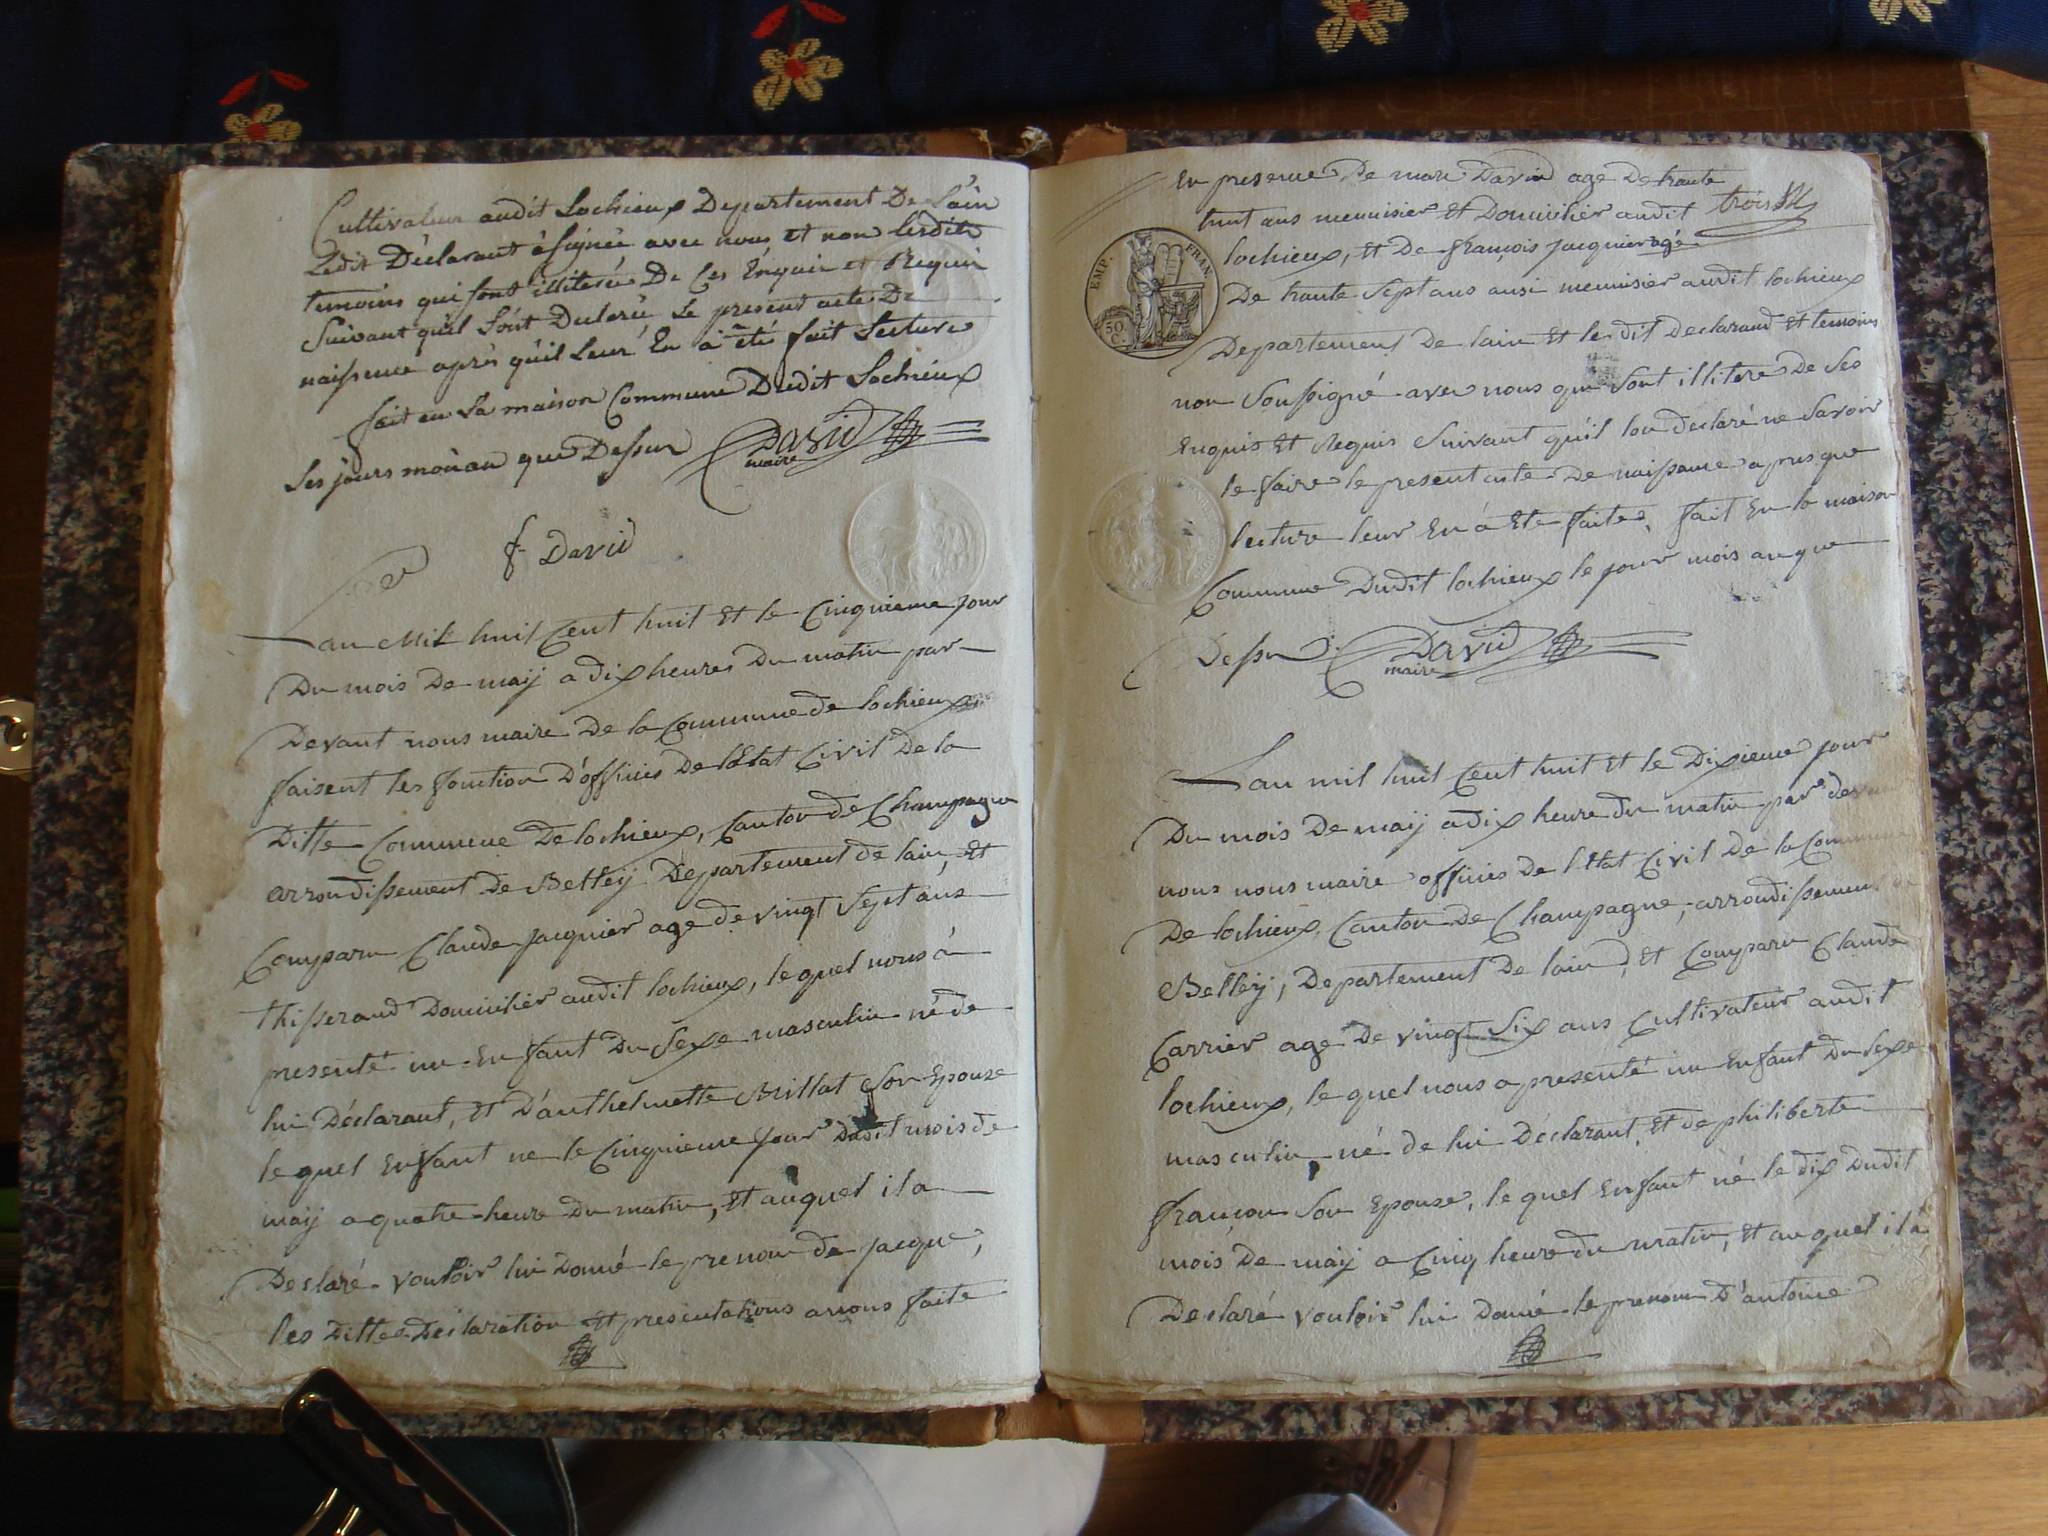 Cultivateur audit Lochieux Departement De L'ain
Ledit Déclarant à signée avec nous et non lesdits
temoins qui sont illiteré De Ces Enquir et Requir
Suivant qu'il Sont Decleré Le present acte De
naissence après qu'il Leur En à été fait Lecture
fait en La maison Commune Dudit Lochieux
Les jours mois an que Dessur David
maire
f David
Lan Mil huit Cent huit Et le Cinquieme jour
Du mois De maij a dix heures Du matin par
Devant nous maire De la Commune de lochieux
faisent les fonction D'officies De l'Etat Civil De la
Ditte Commune De lochieux, Canton de Champagne
arrondissement De Belleij Departement de lain, Et
Comparu Claude jacquier age de vingt Sept ans
thisserand Domicilier audit lochieux, le quel nous à
presenté un Enfant Du Sexe masculin né de
lui Déclarant, Et D'anthelmette Millat Son Epouze
le quel Enfant ne le Cinquieme jour Dudit mois de
maij a quatre heure Du matin, Et auquel il a
Déclaré vouloir lui Donné le prenom de jacque,
les Dittes Déclaration Et presentations avons faite
En presence De marc David age De trante
huit ans menuisier Et Domicilier audit trois
lochieux, Et De françois jacquier agé
De trante Sept ans ausi menuisier audit lochieux
Departement De lain Et les dit Declarand Et temoins
non Soussigné avec nous qui Sont illitere De Ses
Enquis Et Requis Suivant qu'il lon declaré ne Savoir
le faire le present acte De naissance apres que
lecture leur En à Ete faite, fait En la maison
Commune Dudit lochieux le jour mois an que
Dessu David
maire
EMP. FRAN.
50 C.
Lan mil huit Cent huit Et le Dixieme jour
Du mois De maij a dix heure du matin par devan
nous nous maire officies De l'Etat Civil De la Commune
De lochieux, Canton De Champagne, arrondissement
Belleij, Departement De lain, Et Comparu Claude
Carrier age De vingt Six ans Cultivateur audit
lochieux, le quel nous a presenté un Enfant Du Sexe
masculin, né de lui Déclarant, Et de philiberte
françon Son Epouze, le quel Enfant né le dix Dudit
mois De maij a Cinq heure du matin, Et au quel il à
Declaré vouloir lui Donné le prenom D'antoine